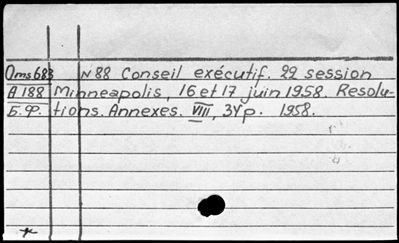 Oms683 N 88 Conseil exécutif. 22 session
A 188 Minneapolis, 16 et 17 juin 1958. Resolu-
Б.Ф. tions. Annexes. VIII, 34 p. 1958.